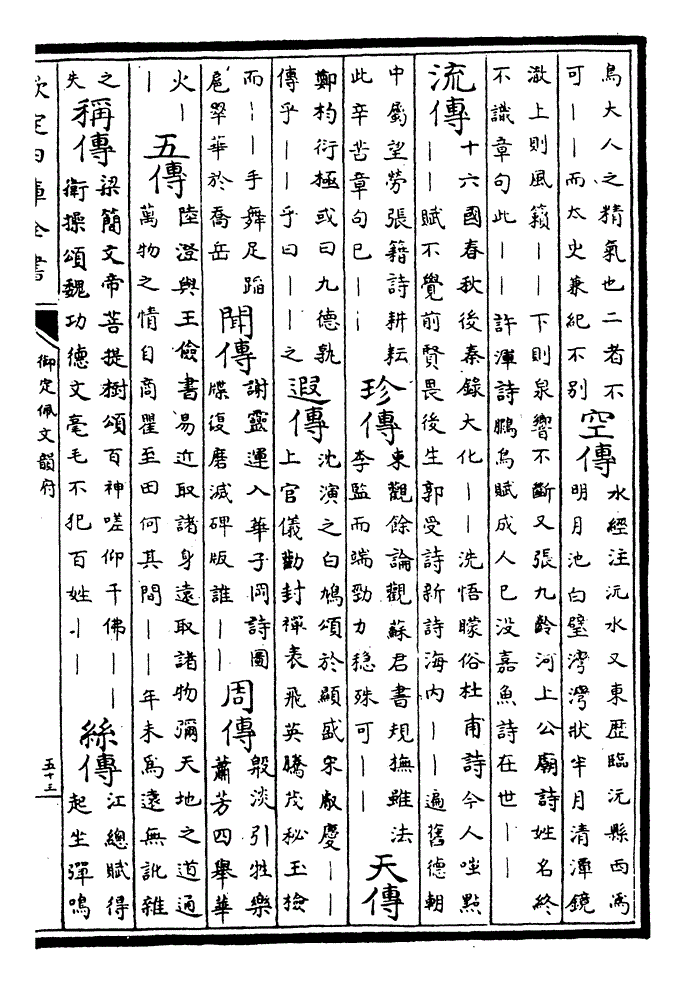 鳥大人之精氣也二者不
可｜｜而太史兼紀不别
空傳
水經注沅水又東歷臨沅縣西為
明月池白璧灣灣狀半月清潭鏡
澈上則風籟｜｜下則泉響不斷又張九齡河上公廟詩姓名終
不識章句此｜｜許渾詩鵬鳥賦成人已没嘉魚詩在世｜｜
流傳
十六國春秋後秦錄大化｜｜洗悟矇俗杜甫詩今人嗤點
｜｜賦不覺前賢畏後生郭受詩新詩海内｜｜遍舊德朝
中屬望勞張籍詩耕耘
此辛苦章句已｜｜
珍傳
東觀餘論觀蘇君書規撫雖法
李監而端勁力穩殊可｜｜
天傳
鄭杓衍極或曰九德孰
傳乎｜｜乎曰｜｜之
遐傳
沈演之白鳩頌於顯盛宋慶｜｜
上官儀勸封禪表飛英騰茂秘玉檢
而｜｜手舞足蹈
扈翠華於喬岳
聞傳
謝靈運入華子岡詩圖
牒復磨滅碑版誰｜｜
周傳
殷淡引牲樂
蕭芳四舉華
火｜
｜
五傳
陸澄與王儉書易近取諸身遠取諸物彌天地之道通
萬物之情自商瞿至田何其間｜｜年未為遠無訛雜
之
失
稱傳
梁簡文帝菩提樹頌百神嗟仰千佛｜｜
衛操頌魏功德文毫毛不犯百姓｜｜
絲傳
江總賦得
起坐彈鳴
欽定四庫全書
御定佩文韻府
五十三